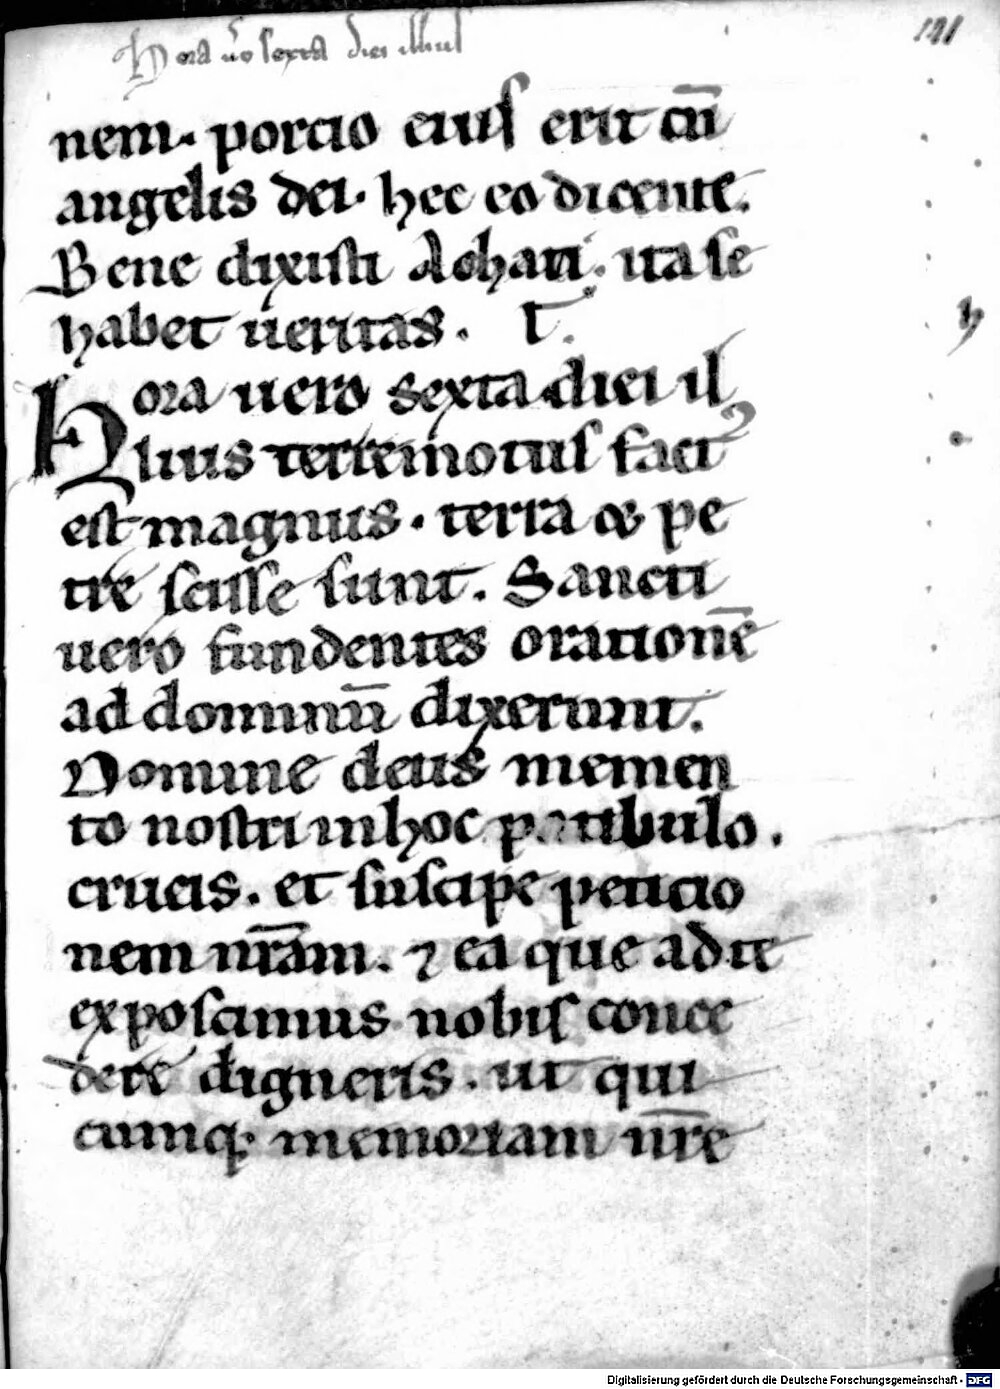 Hora v̄o sexta diei illius
141
nem. porcio eius erit cū
angelis dei. hec eo dicente.
Bene dixisti Achati. ita se
habet ueritas.
h
Hora uero sexta diei il
lius terremotus factꝰ
est magnus. terra & pe
tre scisse sunt. Sancti
uero fundentes orationē
ad dominū dixerunt.
Domine deus memen
to nostri in hoc patibulo.
crucis. et suscipe peticio
nem nr̄am. ⁊ ea que ad te
exposcimus nobis conce
dere digneris. ut qui
cumq; memoriam nr̄e
Digitalisierung gefördert durch die Deutsche Forschungsgemeinschaft - DFG